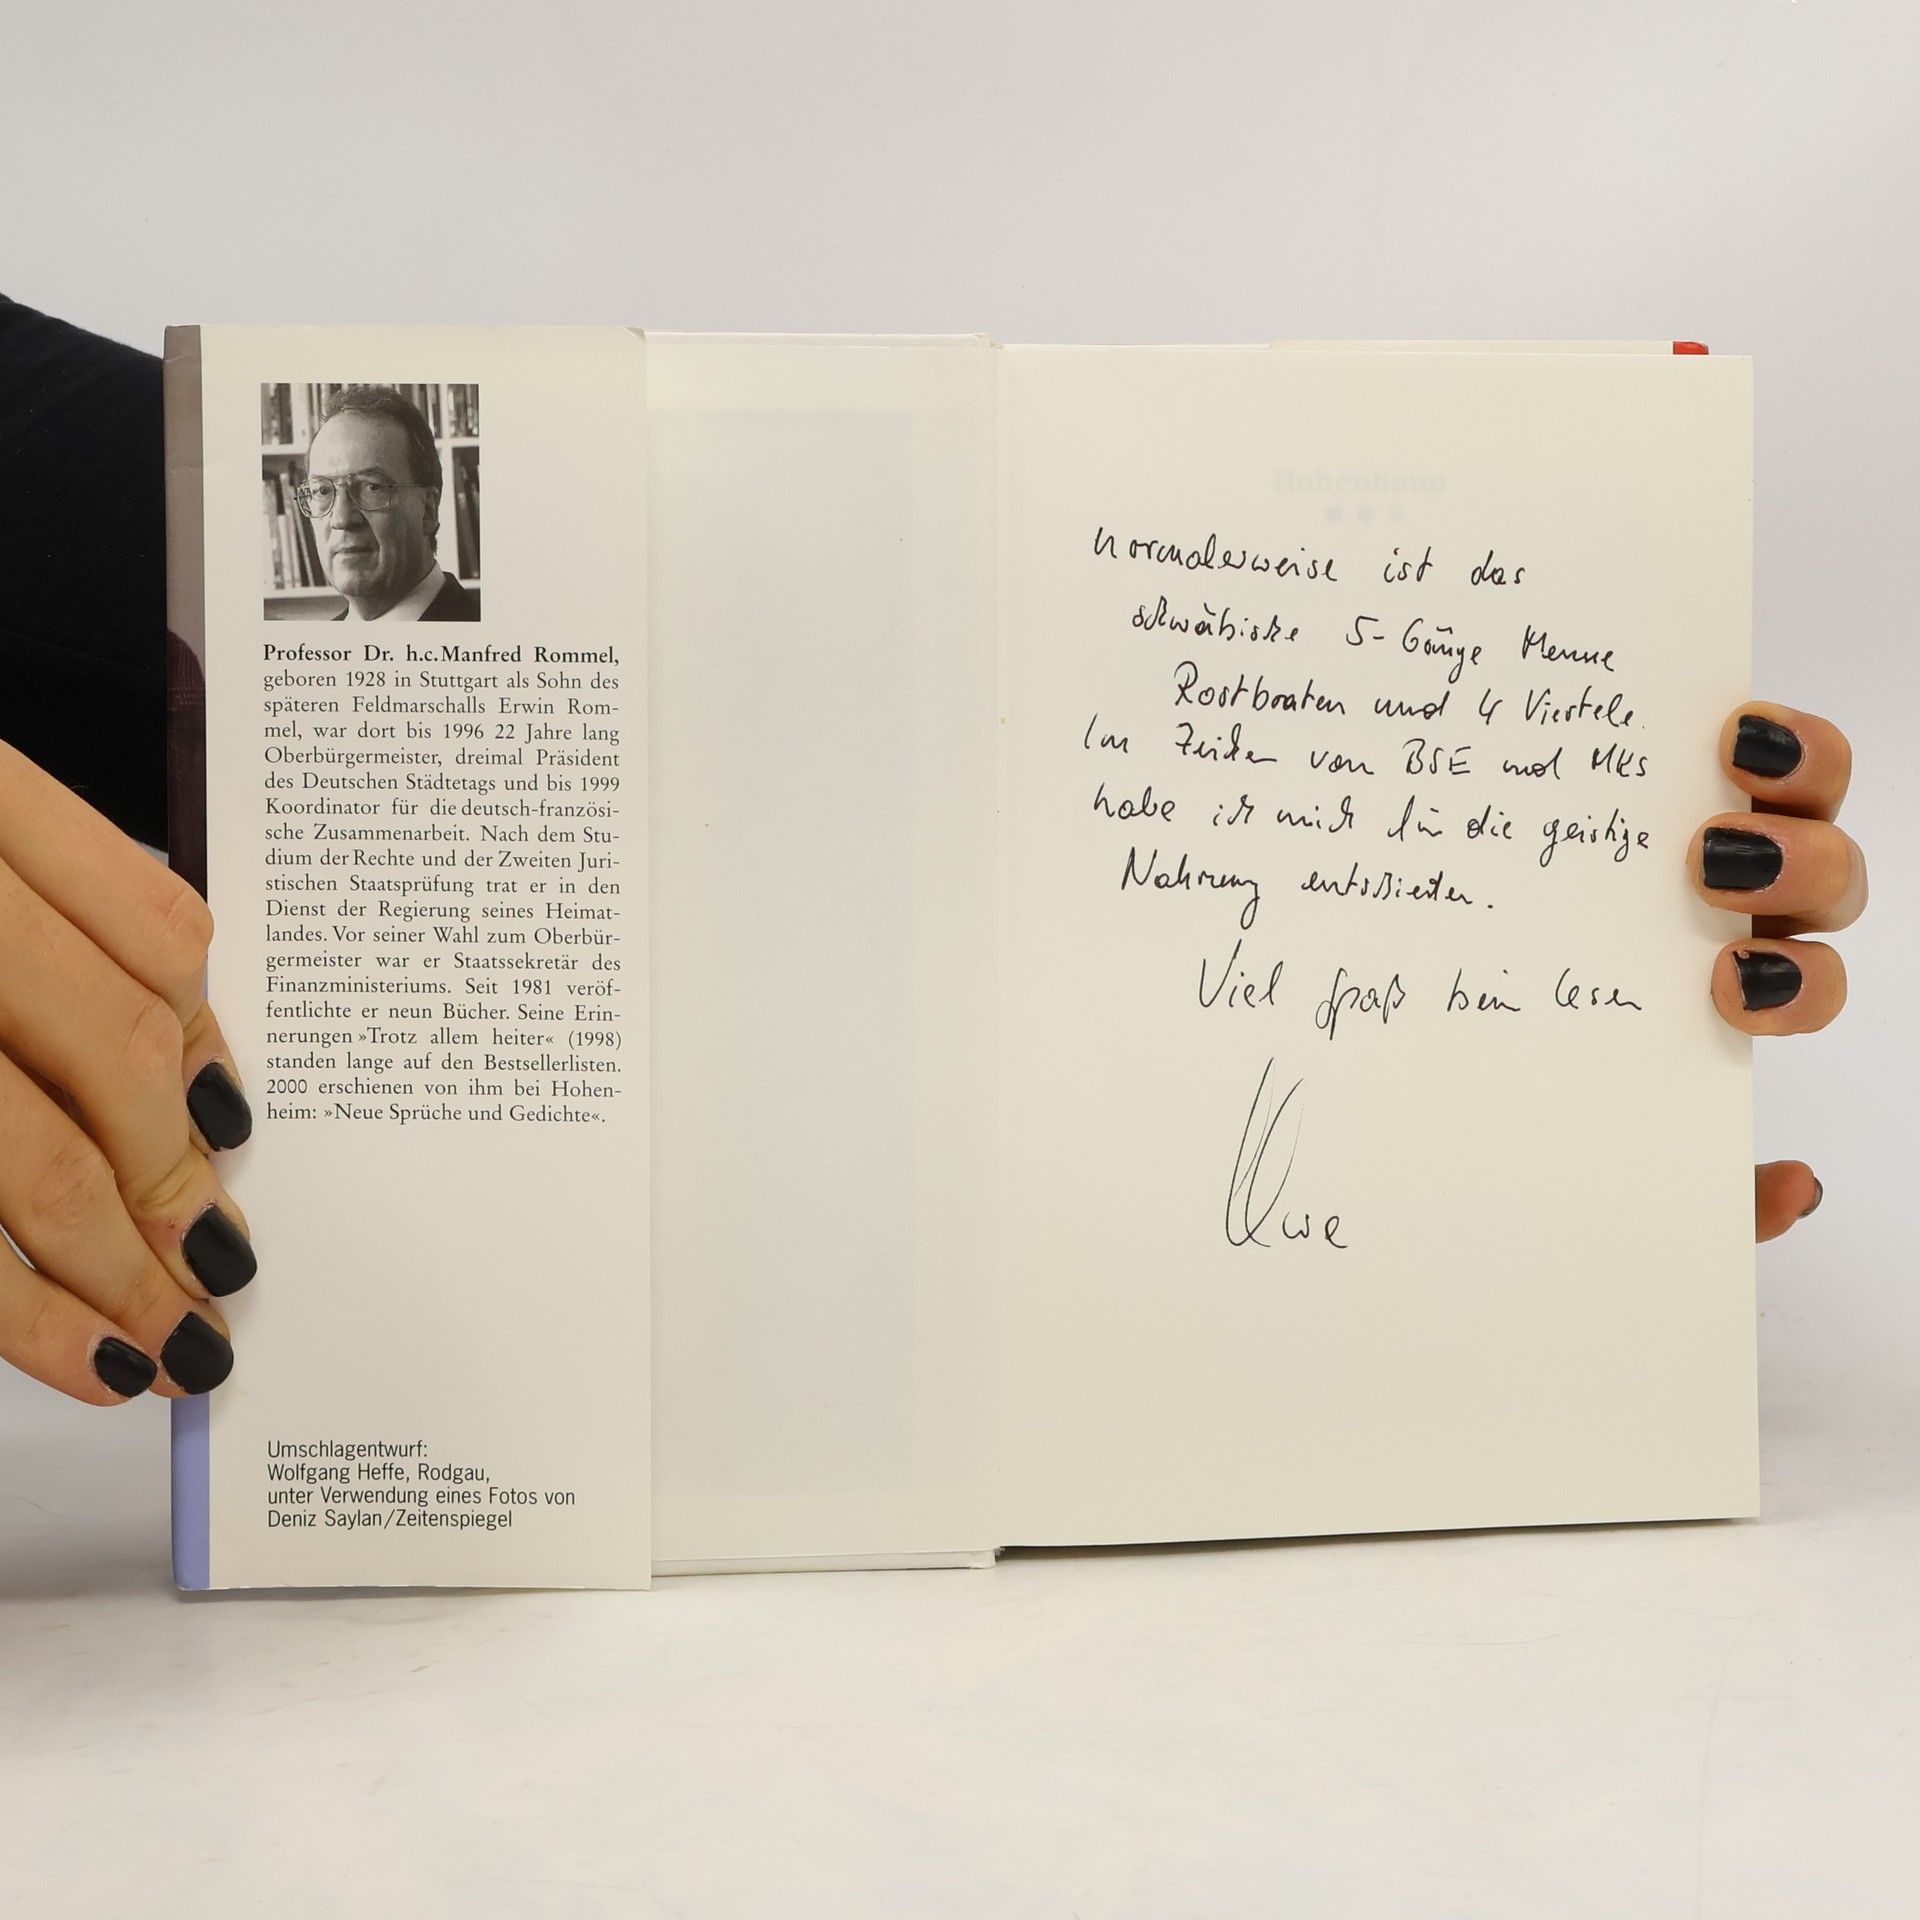 Professor Dr. h.c. Manfred Rommel,
geboren 1928 in Stuttgart als Sohn des
späteren Feldmarschalls Erwin Rom-
mel, war dort bis 1996 22 Jahre lang
Oberbürgermeister, dreimal Präsident
des Deutschen Städtetags und bis 1999
Koordinator für die deutsch-französi-
sche Zusammenarbeit. Nach dem Stu-
dium der Rechte und der Zweiten Juri-
stischen Staatsprüfung trat er in den
Dienst der Regierung seines Heimat-
landes. Vor seiner Wahl zum Oberbür-
germeister war er Staatssekretär des
Finanzministeriums. Seit 1981 veröf-
fentlichte er neun Bücher. Seine Erin-
nerungen »Trotz allem heiter« (1998)
standen lange auf den Bestsellerlisten.
2000 erschienen von ihm bei Hohen-
heim: »Neue Sprüche und Gedichte«.
Umschlagentwurf:
Wolfgang Heffe, Rodgau,
unter Verwendung eines Fotos von
Deniz Saylan/Zeitenspiegel
Hohenheim
normalerweise ist das
schwäbische 5-Gänge Menue
Rostbraten und 4 Viertele.
Im Zeichen von BSE und MKS
habe ich mich für die geistige
Nahrung entschieden.
Viel Spaß beim lesen
Uwe